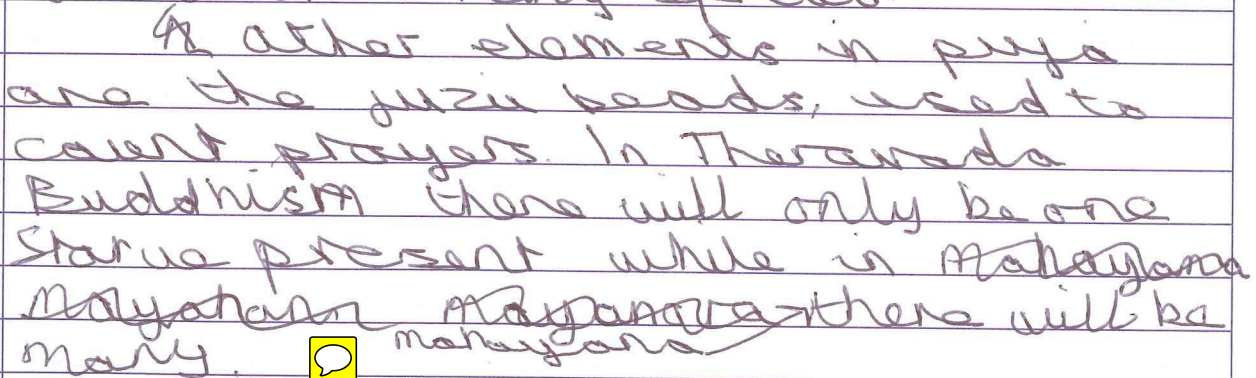 other elements in puja
are the juzu beads, used to
count prayers. In Theravada
Buddhism there will only be one
statue present while in Mahayana
there will be
many. mahayana